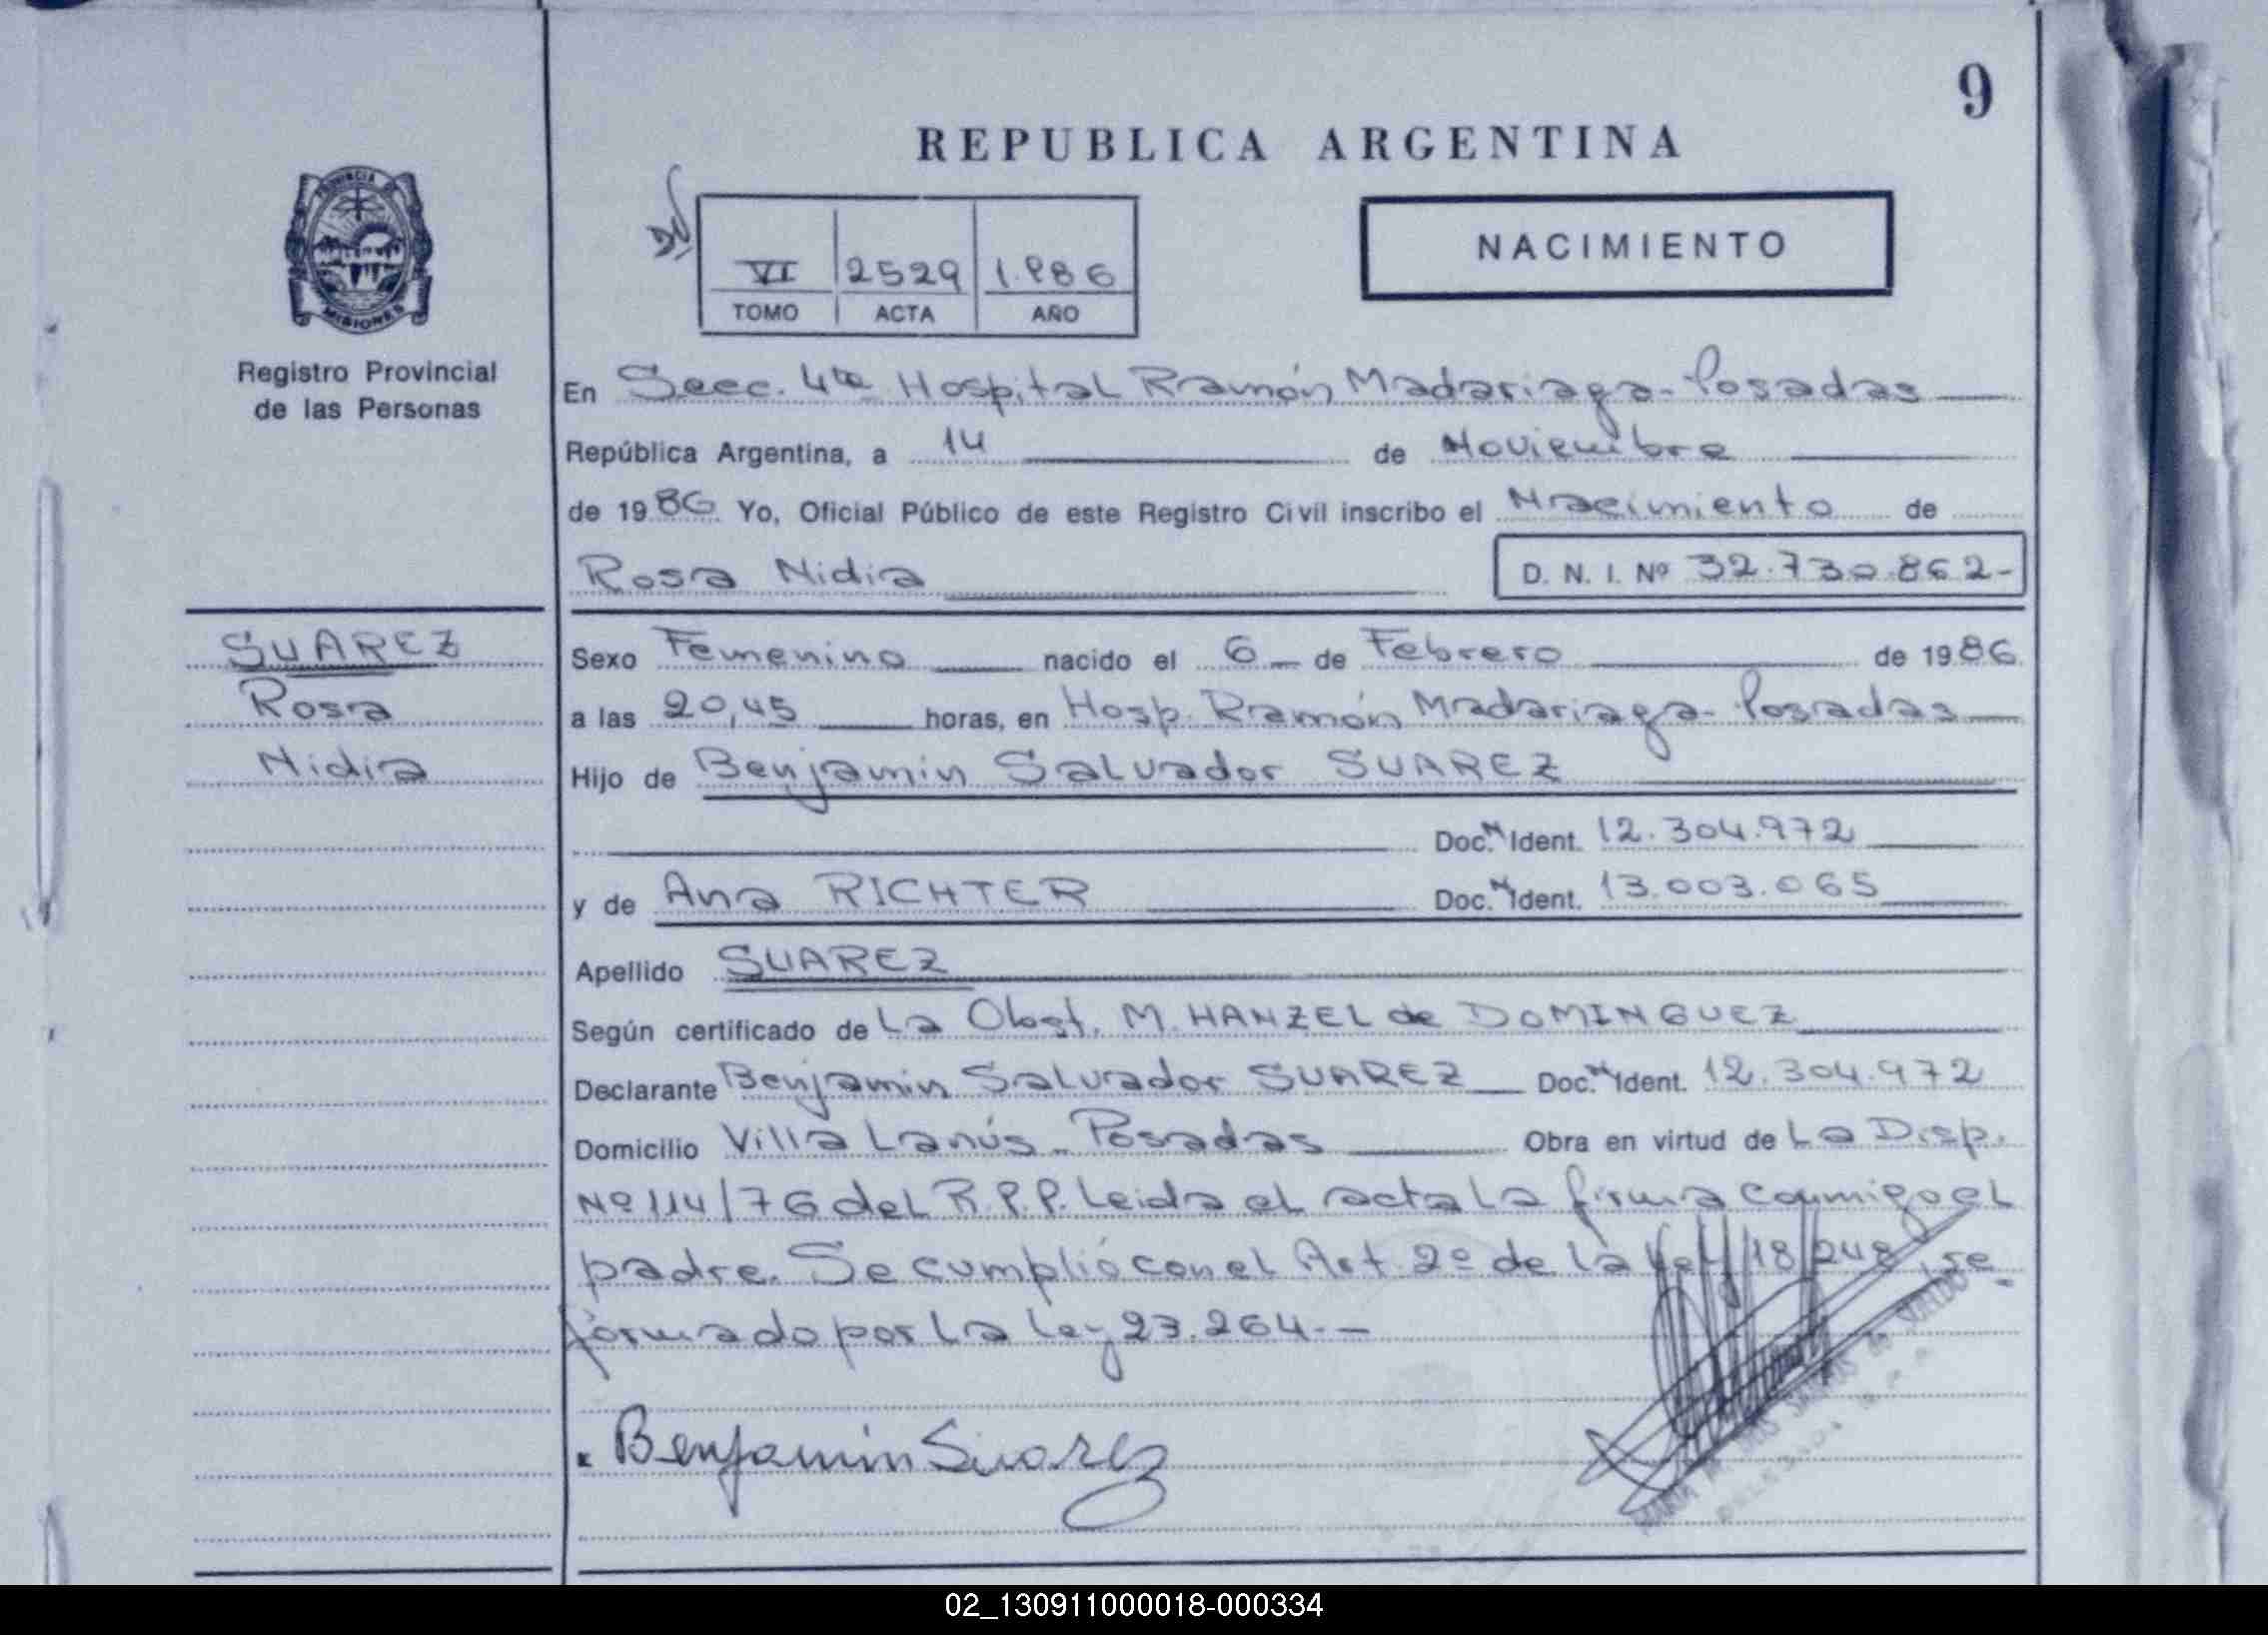 9
REPUBLICA ARGENTINA
PROVINCIA DE
MISIONES
VI 2529 1.986
TOMO ACTA AÑO
NACIMIENTO
Registro Provincial
de las Personas
En Secc. 4ta Hospital Ramón Madariaga - Posadas
República Argentina, a 14 de Noviembre
de 1986 Yo, Oficial Público de este Registro Civil inscribo el Nacimiento de
Rosa Nidia D. N. I. Nº 32.730.862-
SUAREZ
Rosa
Nidia
Sexo Femenino nacido el 6 de Febrero de 1986
a las 20,45 horas, en Hosp. Ramón Madariaga - Posadas
Hijo de Benjamin Salvador SUAREZ
Doc. N Ident. 12.304.972
y de Ana RICHTER Doc. N Ident. 13.003.065
Apellido SUAREZ
Según certificado de La Obst. M. HANZEL de DOMINGUEZ
Declarante Benjamin Salvador SUAREZ Doc. N Ident. 12.304.972
Domicilio Villa Lanús - Posadas Obra en virtud de La Disp.
Nº 114/76 del R.P.P. Leida el acta La firma conmigo el
padre. Se cumplió con el Art. 2º de la Ley 18248, re
formado por La Ley 23.264.-
Benjamin Suarez
02_130911000018-000334